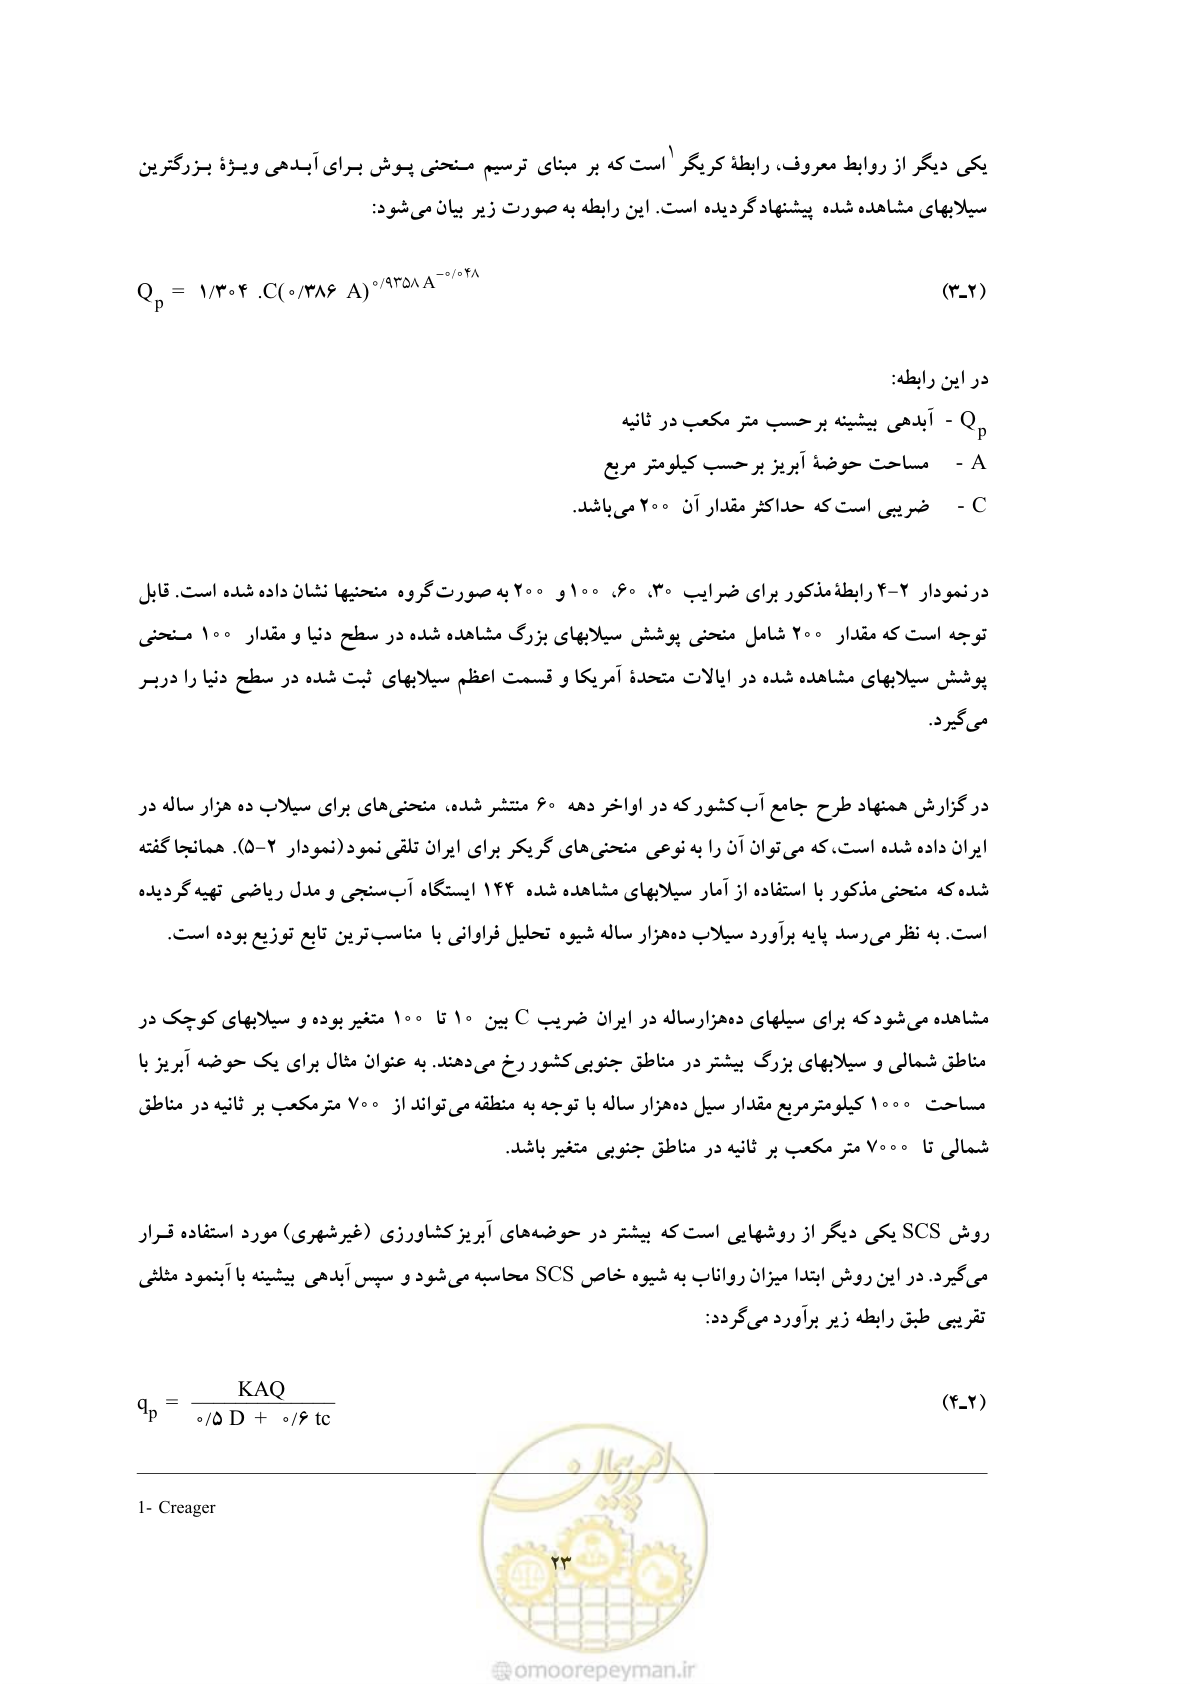 یکی دیگر از روابط معروف، رابطهٔ کریگر۱ است که بر مبنای ترسیم مـنحنی پـوش بـرای آبـدهی ویـژهٔ بـزرگترین
سیلابهای مشاهده شده پیشنهاد گردیده است. این رابطه به صورت زیر بیان می‌شود:
(۳ـ۲) Qp = ۱/۳۰۴ .C(۰/۳۸۶ A)^۰/۹۳۵۸ A^−۰/۰۴۸
در این رابطه:
Qp - آبدهی بیشینه بر حسب متر مکعب در ثانیه
A - مساحت حوضهٔ آبریز بر حسب کیلومتر مربع
C - ضریبی است که حداکثر مقدار آن ۲۰۰ می‌باشد.
در نمودار ۲–۴ رابطهٔ مذکور برای ضرایب ۳۰، ۶۰، ۱۰۰ و ۲۰۰ به صورت گروه منحنیها نشان داده شده است. قابل
توجه است که مقدار ۲۰۰ شامل منحنی پوشش سیلابهای بزرگ مشاهده شده در سطح دنیا و مقدار ۱۰۰ مـنحنی
پوشش سیلابهای مشاهده شده در ایالات متحدهٔ آمریکا و قسمت اعظم سیلابهای ثبت شده در سطح دنیا را دربـر
می‌گیرد.
در گزارش همنهاد طرح جامع آب کشور که در اواخر دهه ۶۰ منتشر شده، منحنی‌های برای سیلاب ده هزار ساله در
ایران داده شده است، که می‌توان آن را به نوعی منحنی‌های گریکر برای ایران تلقی نمود (نمودار ۲–۵). همانجا گفته
شده که منحنی مذکور با استفاده از آمار سیلابهای مشاهده شده ۱۴۴ ایستگاه آب‌سنجی و مدل ریاضی تهیه گردیده
است. به نظر می‌رسد پایه برآورد سیلاب ده‌هزار ساله شیوه تحلیل فراوانی با مناسب‌ترین تابع توزیع بوده است.
مشاهده می‌شود که برای سیلهای ده‌هزارساله در ایران ضریب C بین ۱۰ تا ۱۰۰ متغیر بوده و سیلابهای کوچک در
مناطق شمالی و سیلابهای بزرگ بیشتر در مناطق جنوبی کشور رخ می‌دهند. به عنوان مثال برای یک حوضه آبریز با
مساحت ۱۰۰۰ کیلومترمربع مقدار سیل ده‌هزار ساله با توجه به منطقه می‌تواند از ۷۰۰ مترمکعب بر ثانیه در مناطق
شمالی تا ۷۰۰۰ متر مکعب بر ثانیه در مناطق جنوبی متغیر باشد.
روش SCS یکی دیگر از روشهایی است که بیشتر در حوضه‌های آبریز کشاورزی (غیرشهری) مورد استفاده قـرار
می‌گیرد. در این روش ابتدا میزان رواناب به شیوه خاص SCS محاسبه می‌شود و سپس آبدهی بیشینه با آبنمود مثلثی
تقریبی طبق رابطه زیر برآورد می‌گردد:
(۴ـ۲) qp = KAQ / ۰/۵ D + ۰/۶ tc
1- Creager
امور پیمان
۲۳
omoorepeyman.ir